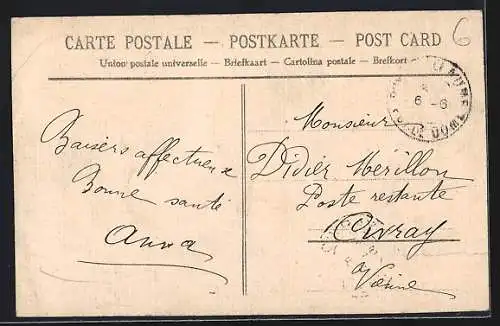 CARTE POSTALE — POSTKARTE — POST CARD
6
Union postale universelle — Briefkaart — Cartolina postale — Brefkort
6 -6
DOME
Baisers affectueux
Bonne santé
Anna
Monsieur
Didier Merillon
Poste restante
Civray
Vienne